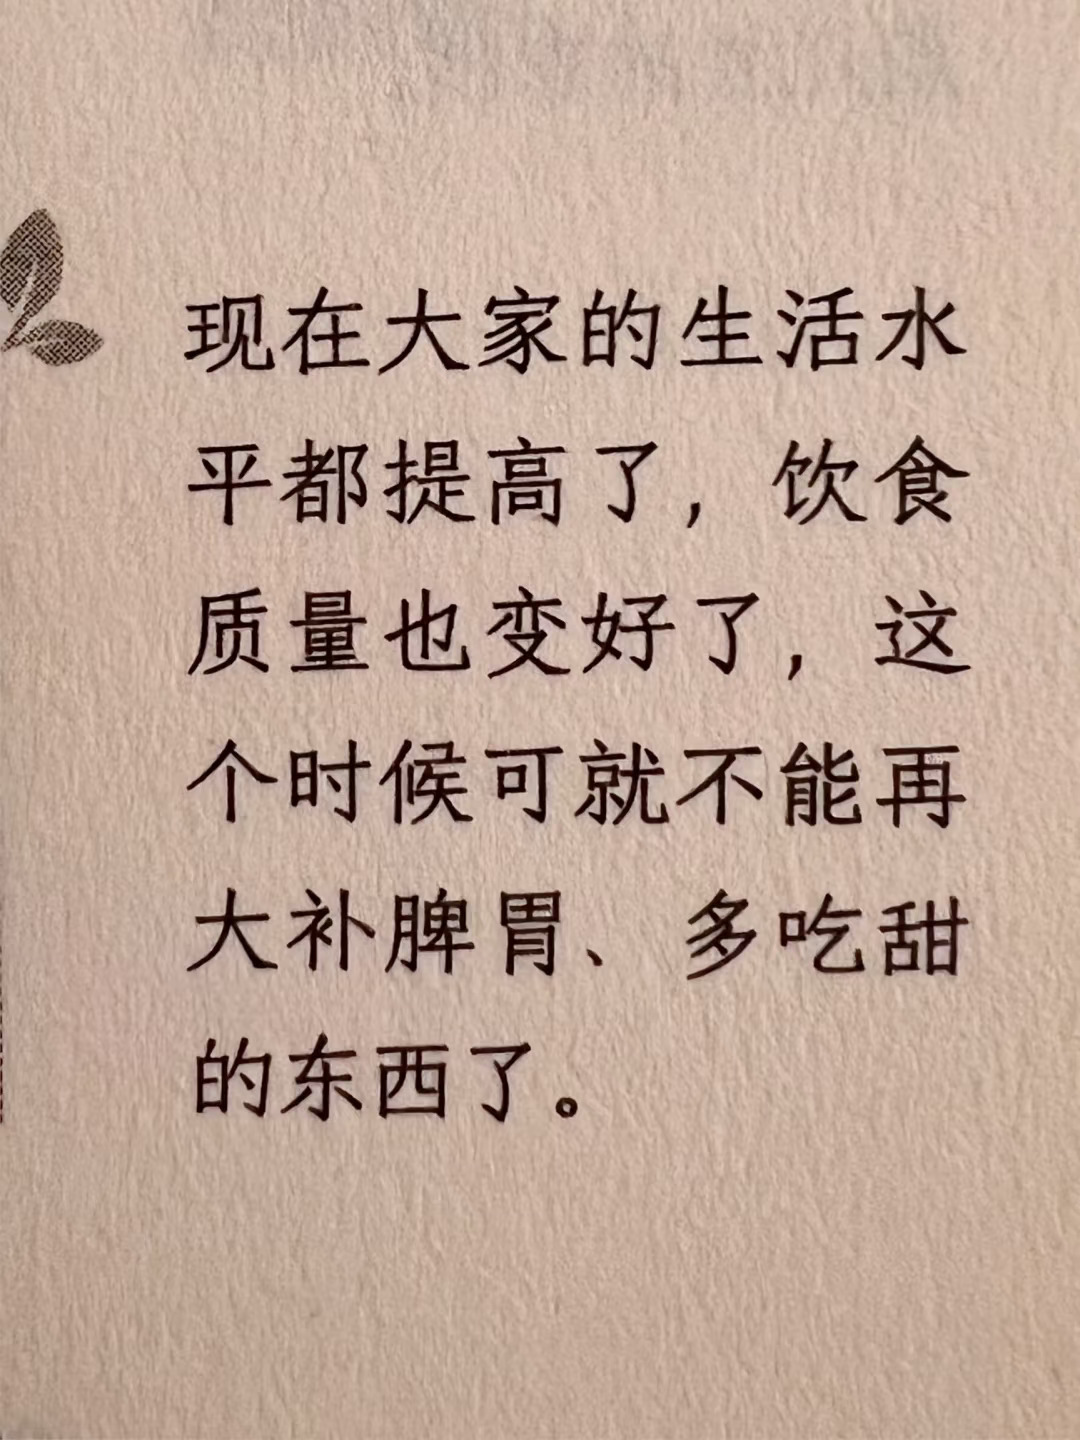 现在大家的生活水
平都提高了，饮食
质量也变好了，这
个时候可就不能再
大补脾胃、多吃甜
的东西了。